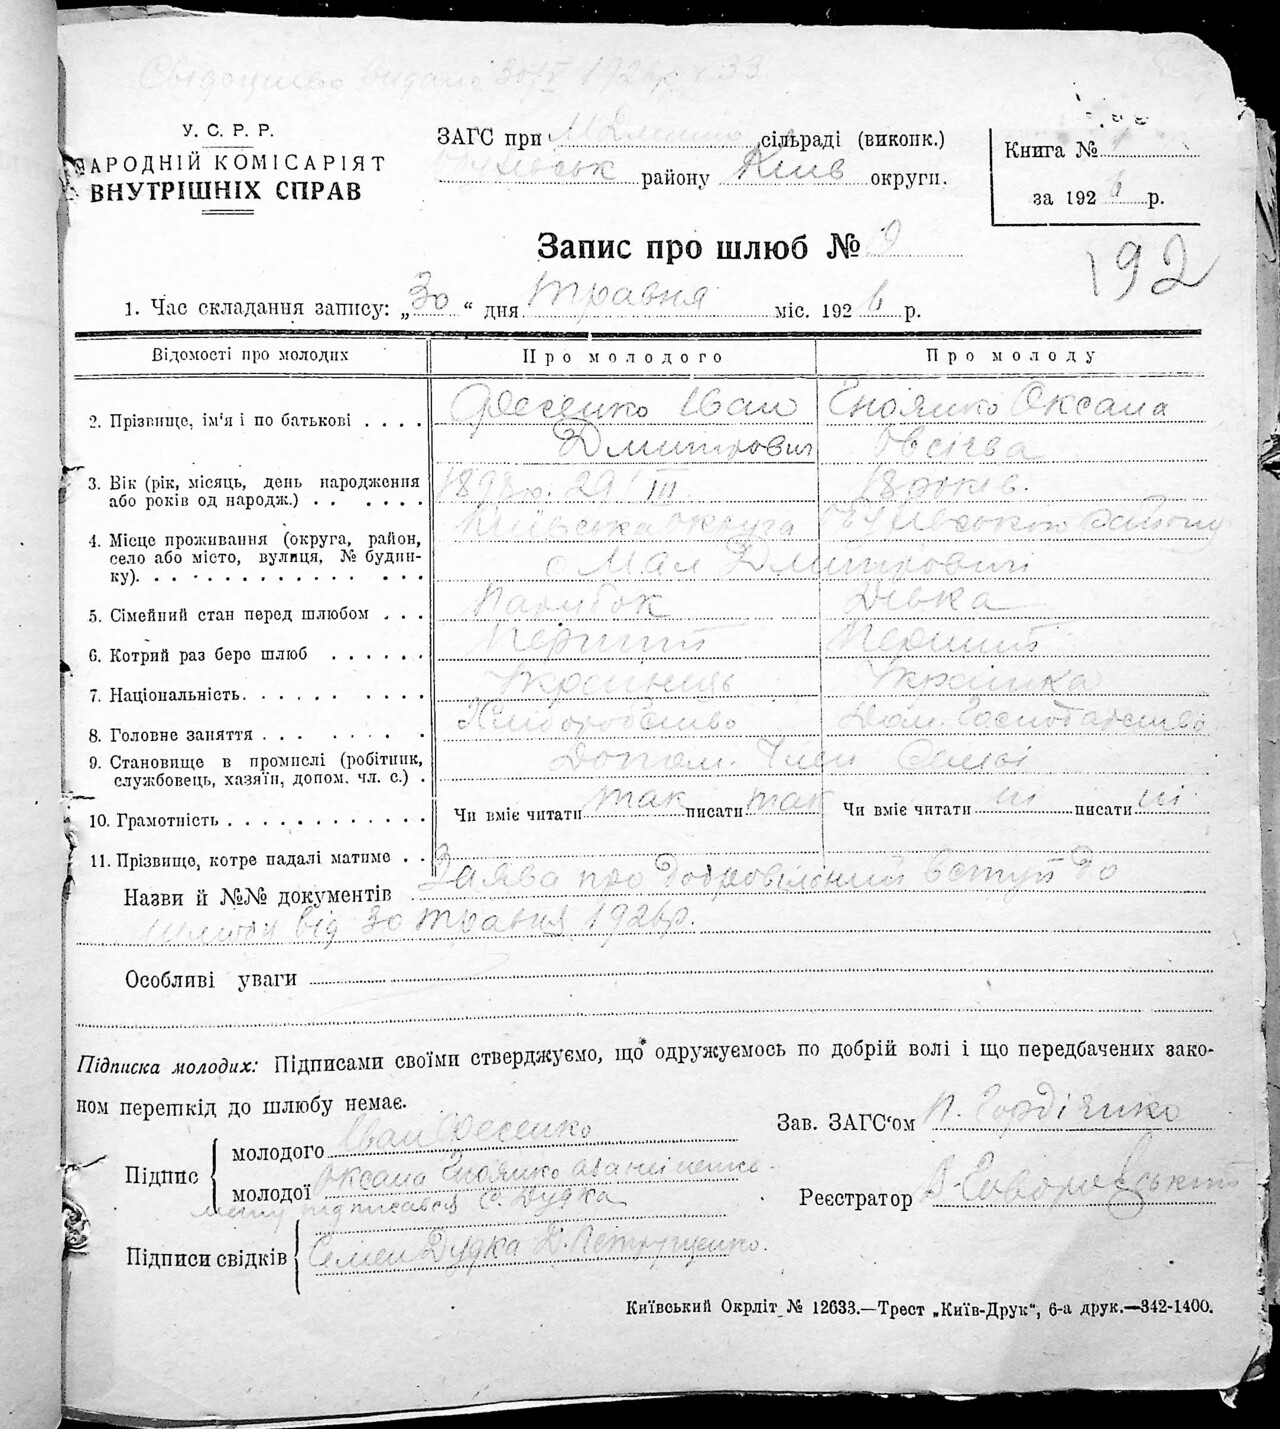 Свідоцтво видано 30/V 1926р. ч 33
У. С. Р. Р.
НАРОДНІЙ КОМІСАРІЯТ
ВНУТРІШНІХ СПРАВ
ЗАГС при сільраді (виконк.)
району Київ округи.
Книга №
за 1926 р.
Запис про шлюб № 9
192
1. Час складання запису: „30“ дня травня міс. 1926 р.
Відомості про молодих Про молодого Про молоду
2. Прізвище, ім'я і по батькові . . . . Фесенко Іван Оксана
Дмитрович Овсієва
3. Вік (рік, місяць, день народження
або років од народж.) . . . . . . 29 III 18 років.
4. Місце проживання (округа, район,
село або місто, вулиця, № будин-
ку). Київська округа району
с Мал Дмитровичі
5. Сімейний стан перед шлюбом . . . Парубок Дівка
6. Котрий раз бере шлюб . . . . . . Перший Перший
7. Національність. Українець Українка
8. Головне заняття Хліборобство Дом. Господарство
9. Становище в промислі (робітник,
службовець, хазяїн, допом. чл. с.) . Допом. Член Семьї
10. Грамотність Чи вміє читати так писати так Чи вміє читати ні писати ні
11. Прізвище, котре надалі матиме . .
Назви й №№ документів Заява про добровільний вступ до
шлюбу від 30 травня 1926р.
Особливі уваги
Підписка молодих: Підписами своїми стверджуємо, що одружуємось по добрій волі і що передбачених зако-
ном перешкід до шлюбу немає.
Зав. ЗАГС'ом П. Гордієнко
Підпис молодого Іван Фесенко
молодої Оксана
підписався С. Дудка
Реєстратор В.
Підписи свідків Семен Дудка Д. Петрущенко.
Київський Окрліт № 12633.—Трест „Київ-Друк“, 6-а друк.—342-1400.